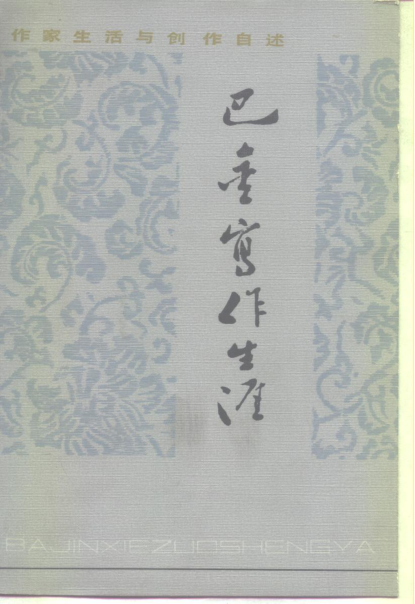 作家生活与创作自述
巴金寫作生涯
BAJINXIEZUOSHENGYA